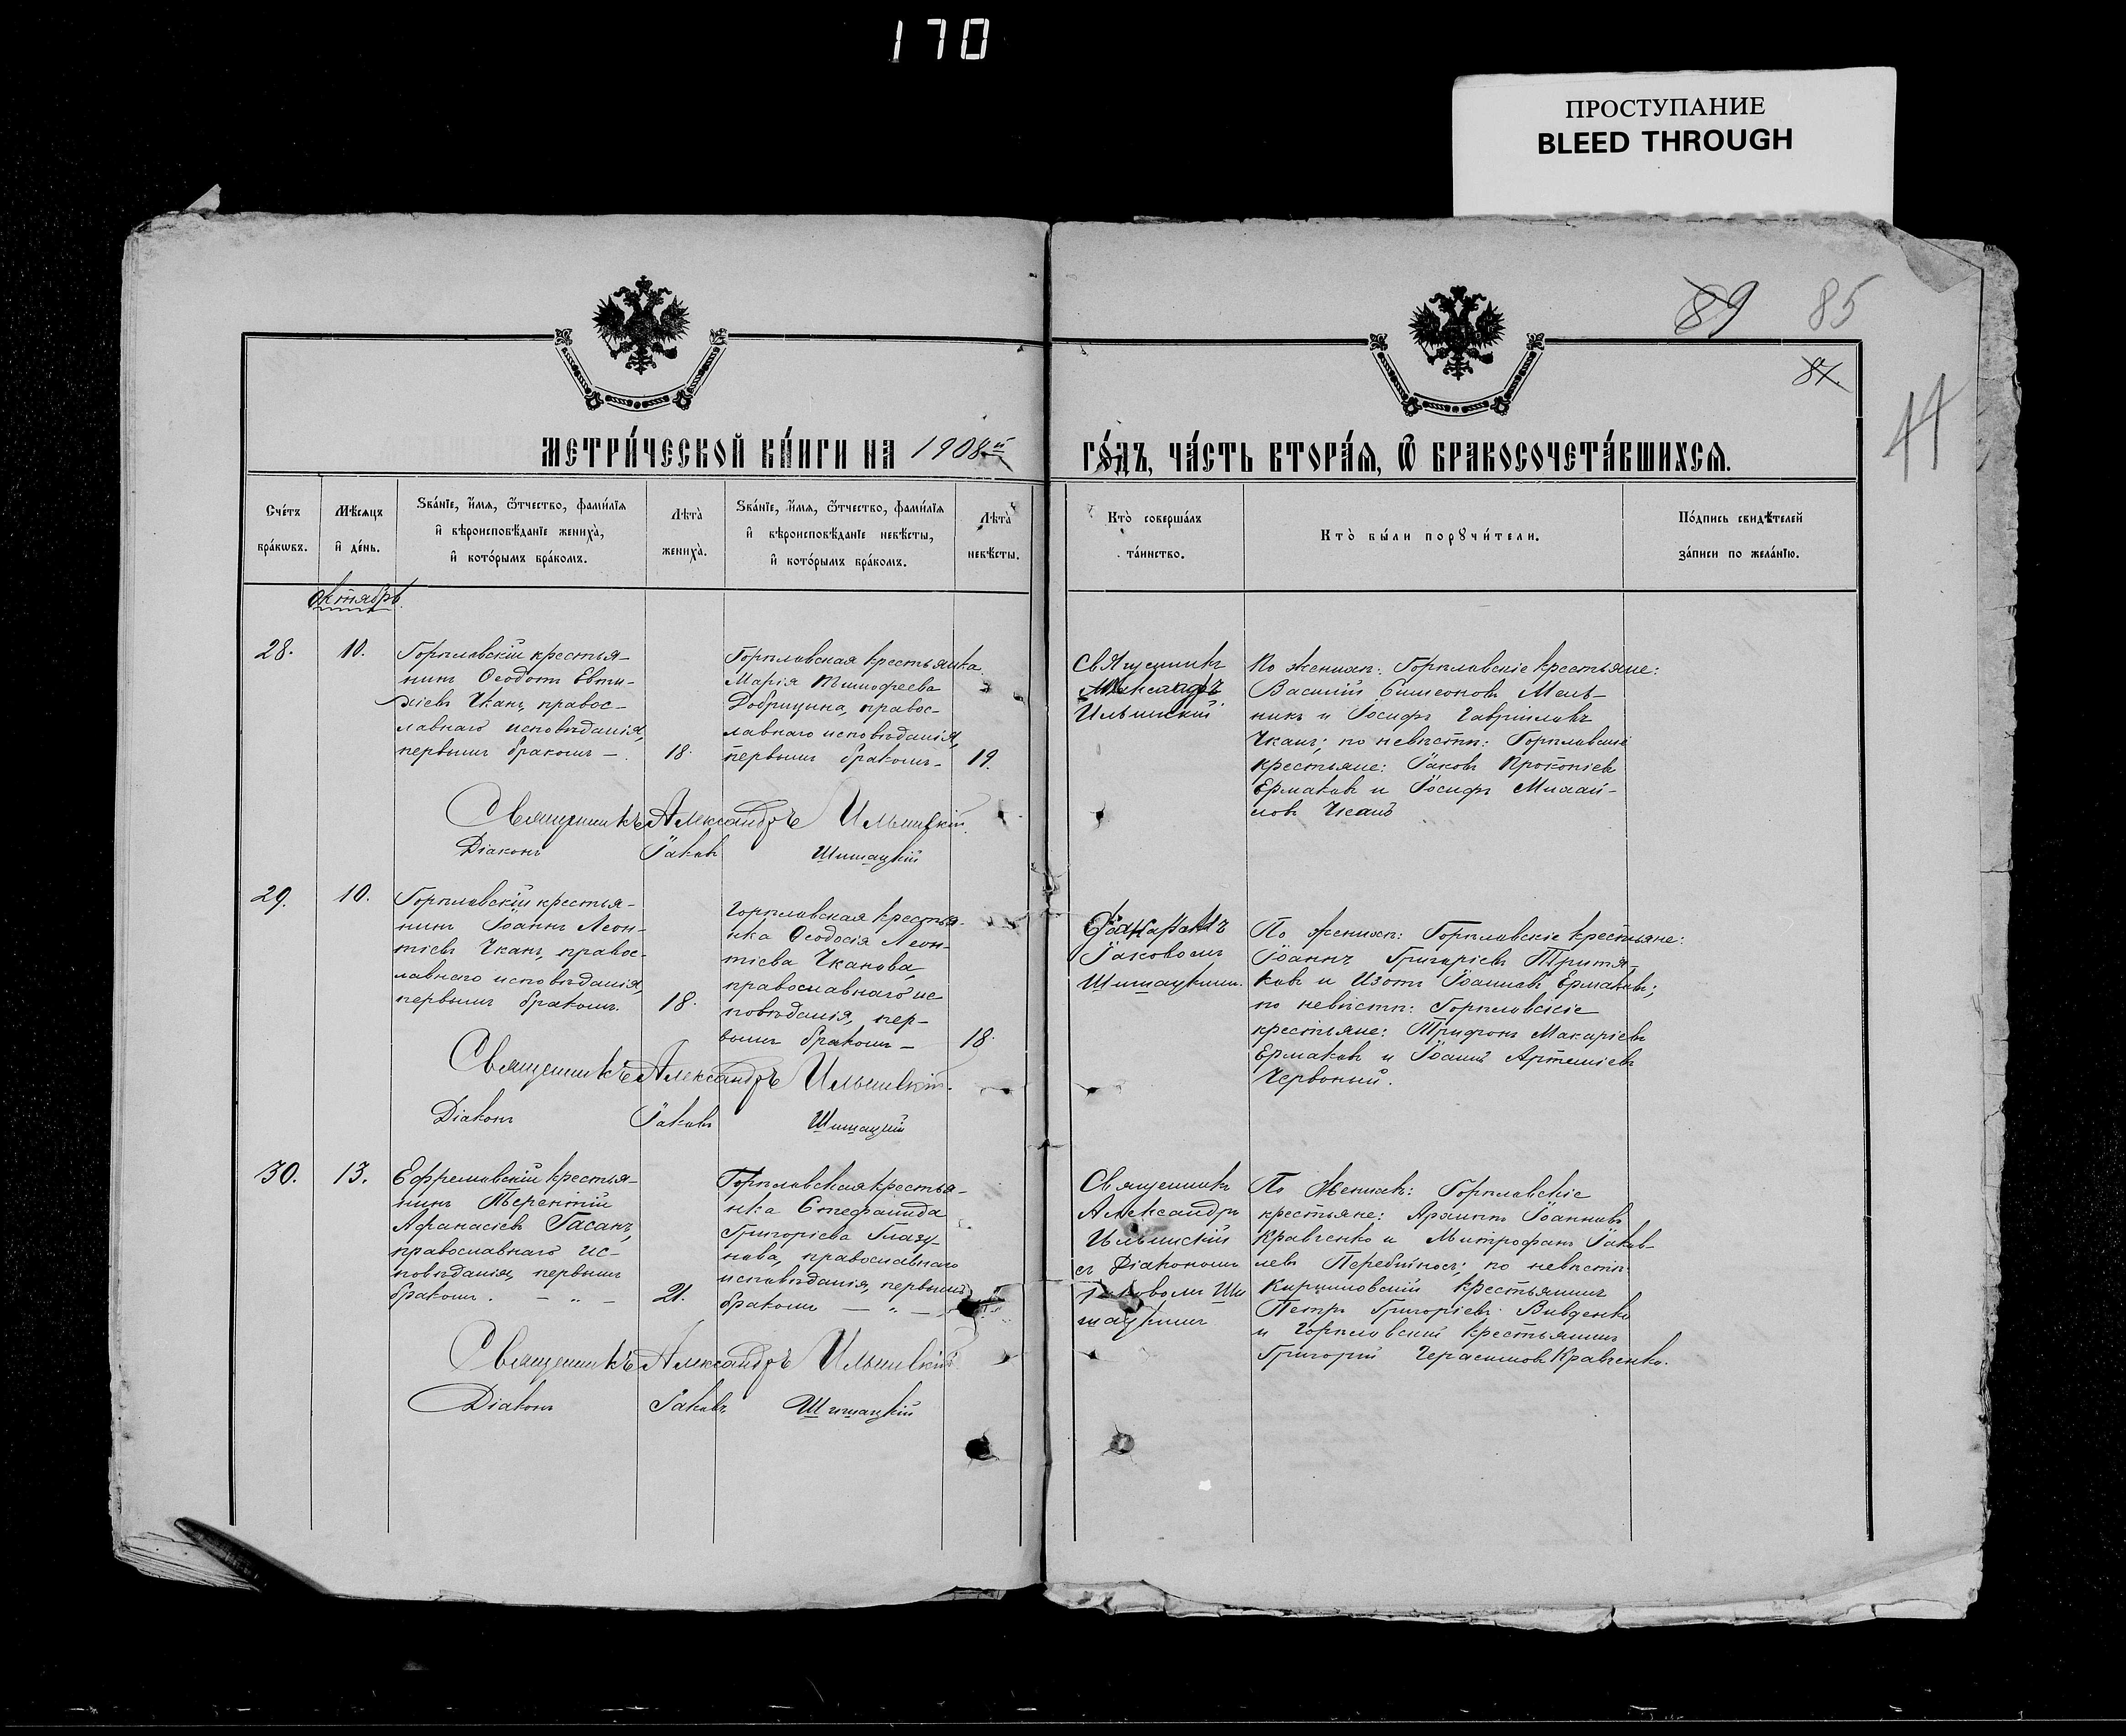 170
ПРОСТУПАНИЕ
BLEED THROUGH
89 85
87.
44
МЕТРИ́ЧЕСКОЙ КНИ́ГИ НА 1908й ГО́ДЪ, ЧА́СТЬ ВТОРА́Я, Ѿ БРАКОСОЧЕТА́ВШИХСЯ.
Сче́тъ
бра́кѡвъ.
Мѣ́сяцъ
и҆ де́нь.
Ѕва́нїе, и҆́мя, ѻ҆́тчество, фами́лїя
и҆ вѣроисповѣ́данїе жениха̀,
и҆ кото́рымъ бра́комъ.
Лѣта̀
жениха̀.
Ѕва́нїе, и҆́мя, ѻ҆́тчество, фами́лїя
и҆ вѣроисповѣ́данїе невѣ́сты,
и҆ кото́рымъ бра́комъ.
Лѣта̀
невѣ́сты.
Кто̀ соверша́лъ
та́инство.
Кто̀ бы́ли порꙋчи́тели.
По́дпись свидѣ́телей
за́писи по жела́нїю.
Октябрь.
28.
10.
Горѣловскій крестья-
нинъ Ѳеодотъ Евти-
хіевъ Чканъ, правос-
лавнаго исповѣданія,
первымъ бракомъ –
18.
Горѣловская крестьянка
Марія Тимофеева
Добрицина, правос-
лавнаго исповѣданія,
первымъ бракомъ –
19.
Священникъ
Александръ
Ильинскій.
По женихѣ: Горѣловскіе крестьяне:
Василій Симеоновъ Мель-
никъ и Іосифъ Гавріиловъ
Чканъ; по невѣстѣ: Горѣловскіе
крестьяне: Іаковъ Прокопіевъ
Ермаковъ и Іосифъ Михай-
ловъ Чканъ
Священникъ Александръ Ильинскій.
Діаконъ Іаковъ Шишацкій
29.
10.
Горѣловскій крестья-
нинъ Іоаннъ Леон-
тіевъ Чканъ, правос-
лавнаго исповѣданія,
первымъ бракомъ.
18.
Горѣловская крестья-
нка Ѳеодосія Леон-
тіева Чканова,
православнаго ис
повѣданія, пер-
вымъ бракомъ –
18.
Іаковомъ
Шишацкимъ.
По женихѣ: Горѣловскіе крестьяне:
Іоаннъ Григоріевъ Тритя-
ковъ и Изотъ Іоанновъ Ермаковъ;
по невѣстѣ: Горѣловскіе
крестьяне: Трифонъ Макаріевъ
Ермаковъ и Іоаннъ Артеміевъ
Червоный.
Священникъ Александръ Ильинскій.
Діаконъ Іаковъ Шишацкій
30.
13.
Ефремовскій крестья-
нинъ Терентій
Афанасіевъ Гасанъ,
православнаго ис-
повѣданія, первымъ
бракомъ. – „ –
21.
Горѣловская крестья-
нка Стефанида
Григоріева Глазу-
нова, православнаго
исповѣданія, первымъ
бракомъ – „ –
Священникъ
Александръ
Ильинскій
съ Діакономъ
Іаковомъ Ши
шацкимъ
По женихѣ: Горѣловскіе
крестьяне: Архипъ Іоанновъ
Кравченко и Митрофанъ Іаков-
левъ Перебійносъ; по невѣстѣ:
Кирилловскій крестьянинъ
Петръ Григоріевъ Вивденко
и Горѣловскій крестьянинъ
Григорій Герасимовъ Кравченко.
Священникъ Александръ Ильинскій
Діаконъ Іаковъ Шишацкій